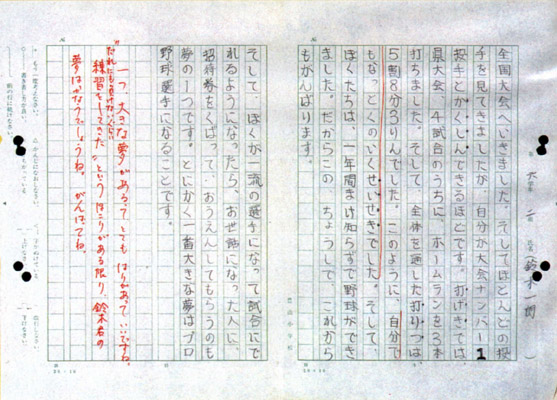 六年 二組 氏名( 鈴木一朗 )
全国大会へいきました。そしてほとんどの投
手を見てきましたが、自分が大会ナンバー1
投手とかくしんできるほどです。打げきでは、
県大会 4試合のうちに、ホームランを3本
打ちました。そして、全体を通した打りつは、
5割8分3りんでした。このように、自分で
もなっとくのいくせいせきでした。そして、
ぼくたちは、一年間まけ知らずで野球ができ
ました。だからこの ちょうしで、これから
もがんばります。
豊山小学校
20×10
そして、ぼくが一流の選手になって試合にで
れるようになったら、お世話になった人に、
招待券をくばって、おうえんしてもらうのも
夢の1つです。とにかく一番大きな夢はプロ
野球選手になることです。
一つ、大きな夢があるって とても はりがあって いいですね。
"だれにもまけないくらい
練習をしてきた"というほこりがある限り、鈴木君の
夢はかなうでしょうね。がんばってね。
20×10